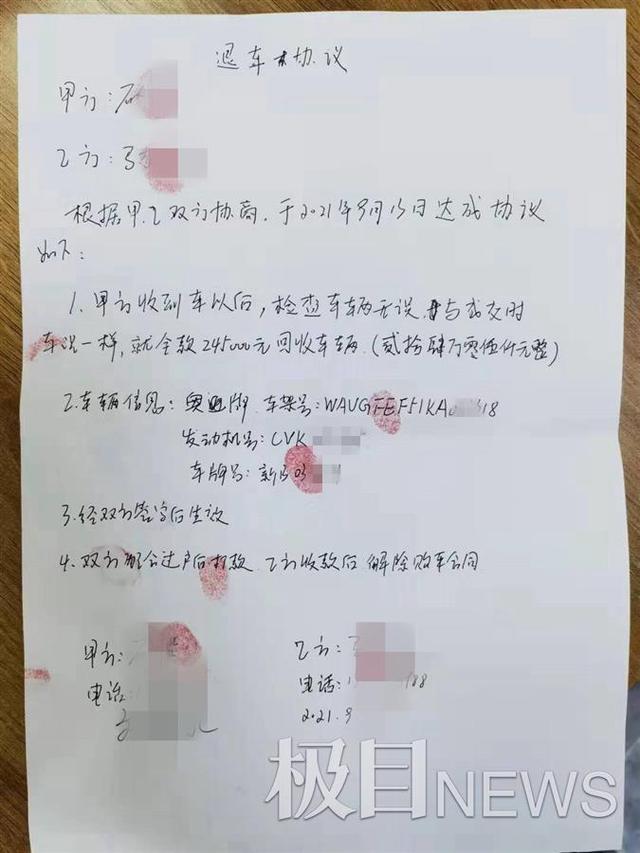 退车协议
甲方：石
乙方：马
根据甲.乙双方协商，于2021年9月15日达成协议
如下：
1. 甲方收到车以后，检查车辆无误，与成交时
车况一样，就全款245000元回收车辆.(贰拾肆万零伍仟元整)
2.车辆信息：奥迪牌.车架号：WAUGFEF51KA 18
发动机号：CVK
车牌号：新
3.经双方签字后生效
4.双方配合过户后打款.乙方收款后 解除购车合同
甲方：
乙方：
电话：
电话：1 188
2021.9
极目NEWS